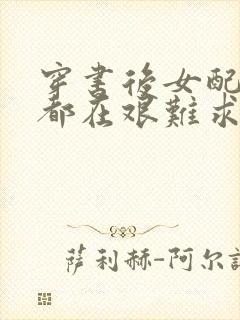 穿书後女配
都在艰難求
萨利赫-阿尔